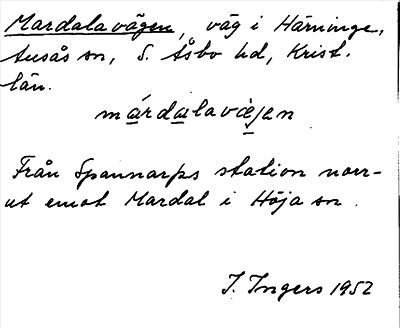 Mardalavägen, väg i Härninge,
Ausås sn, S. Åsbo hd, Krist.
län.
márdalavὲjen
Från Spannarps station norr-
ut emot Mardal i Höja sn.
I. Ingers 1952